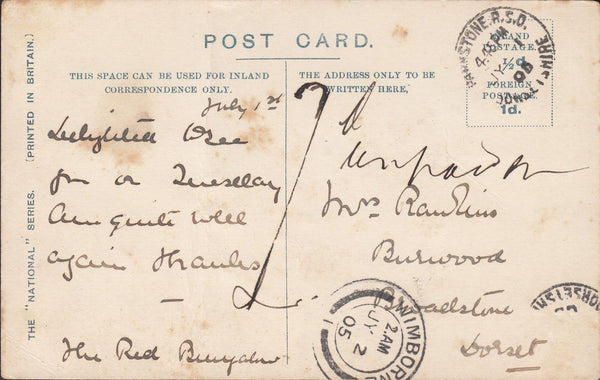 POST CARD.
THIS SPACE CAN BE USED FOR INLAND
CORRESPONDENCE ONLY.
THE ADDRESS ONLY TO BE
WRITTEN HERE.
INLAND
POSTAGE.
½d
FOREIGN
POSTAGE.
1d.
PARKSTONE. R.S.O.
4.45PM
JY
05
THE "NATIONAL" SERIES. (PRINTED IN BRITAIN.)
July 1st
Delighted to see
you on Tuesday
Am quite well
again thanks
The Red Bungalow
1d
unpaid
Mrs Rawlins
Burwood
Broadstone
Dorset
WIMBORNE
2 AM
JY 2
05
DORSETSH